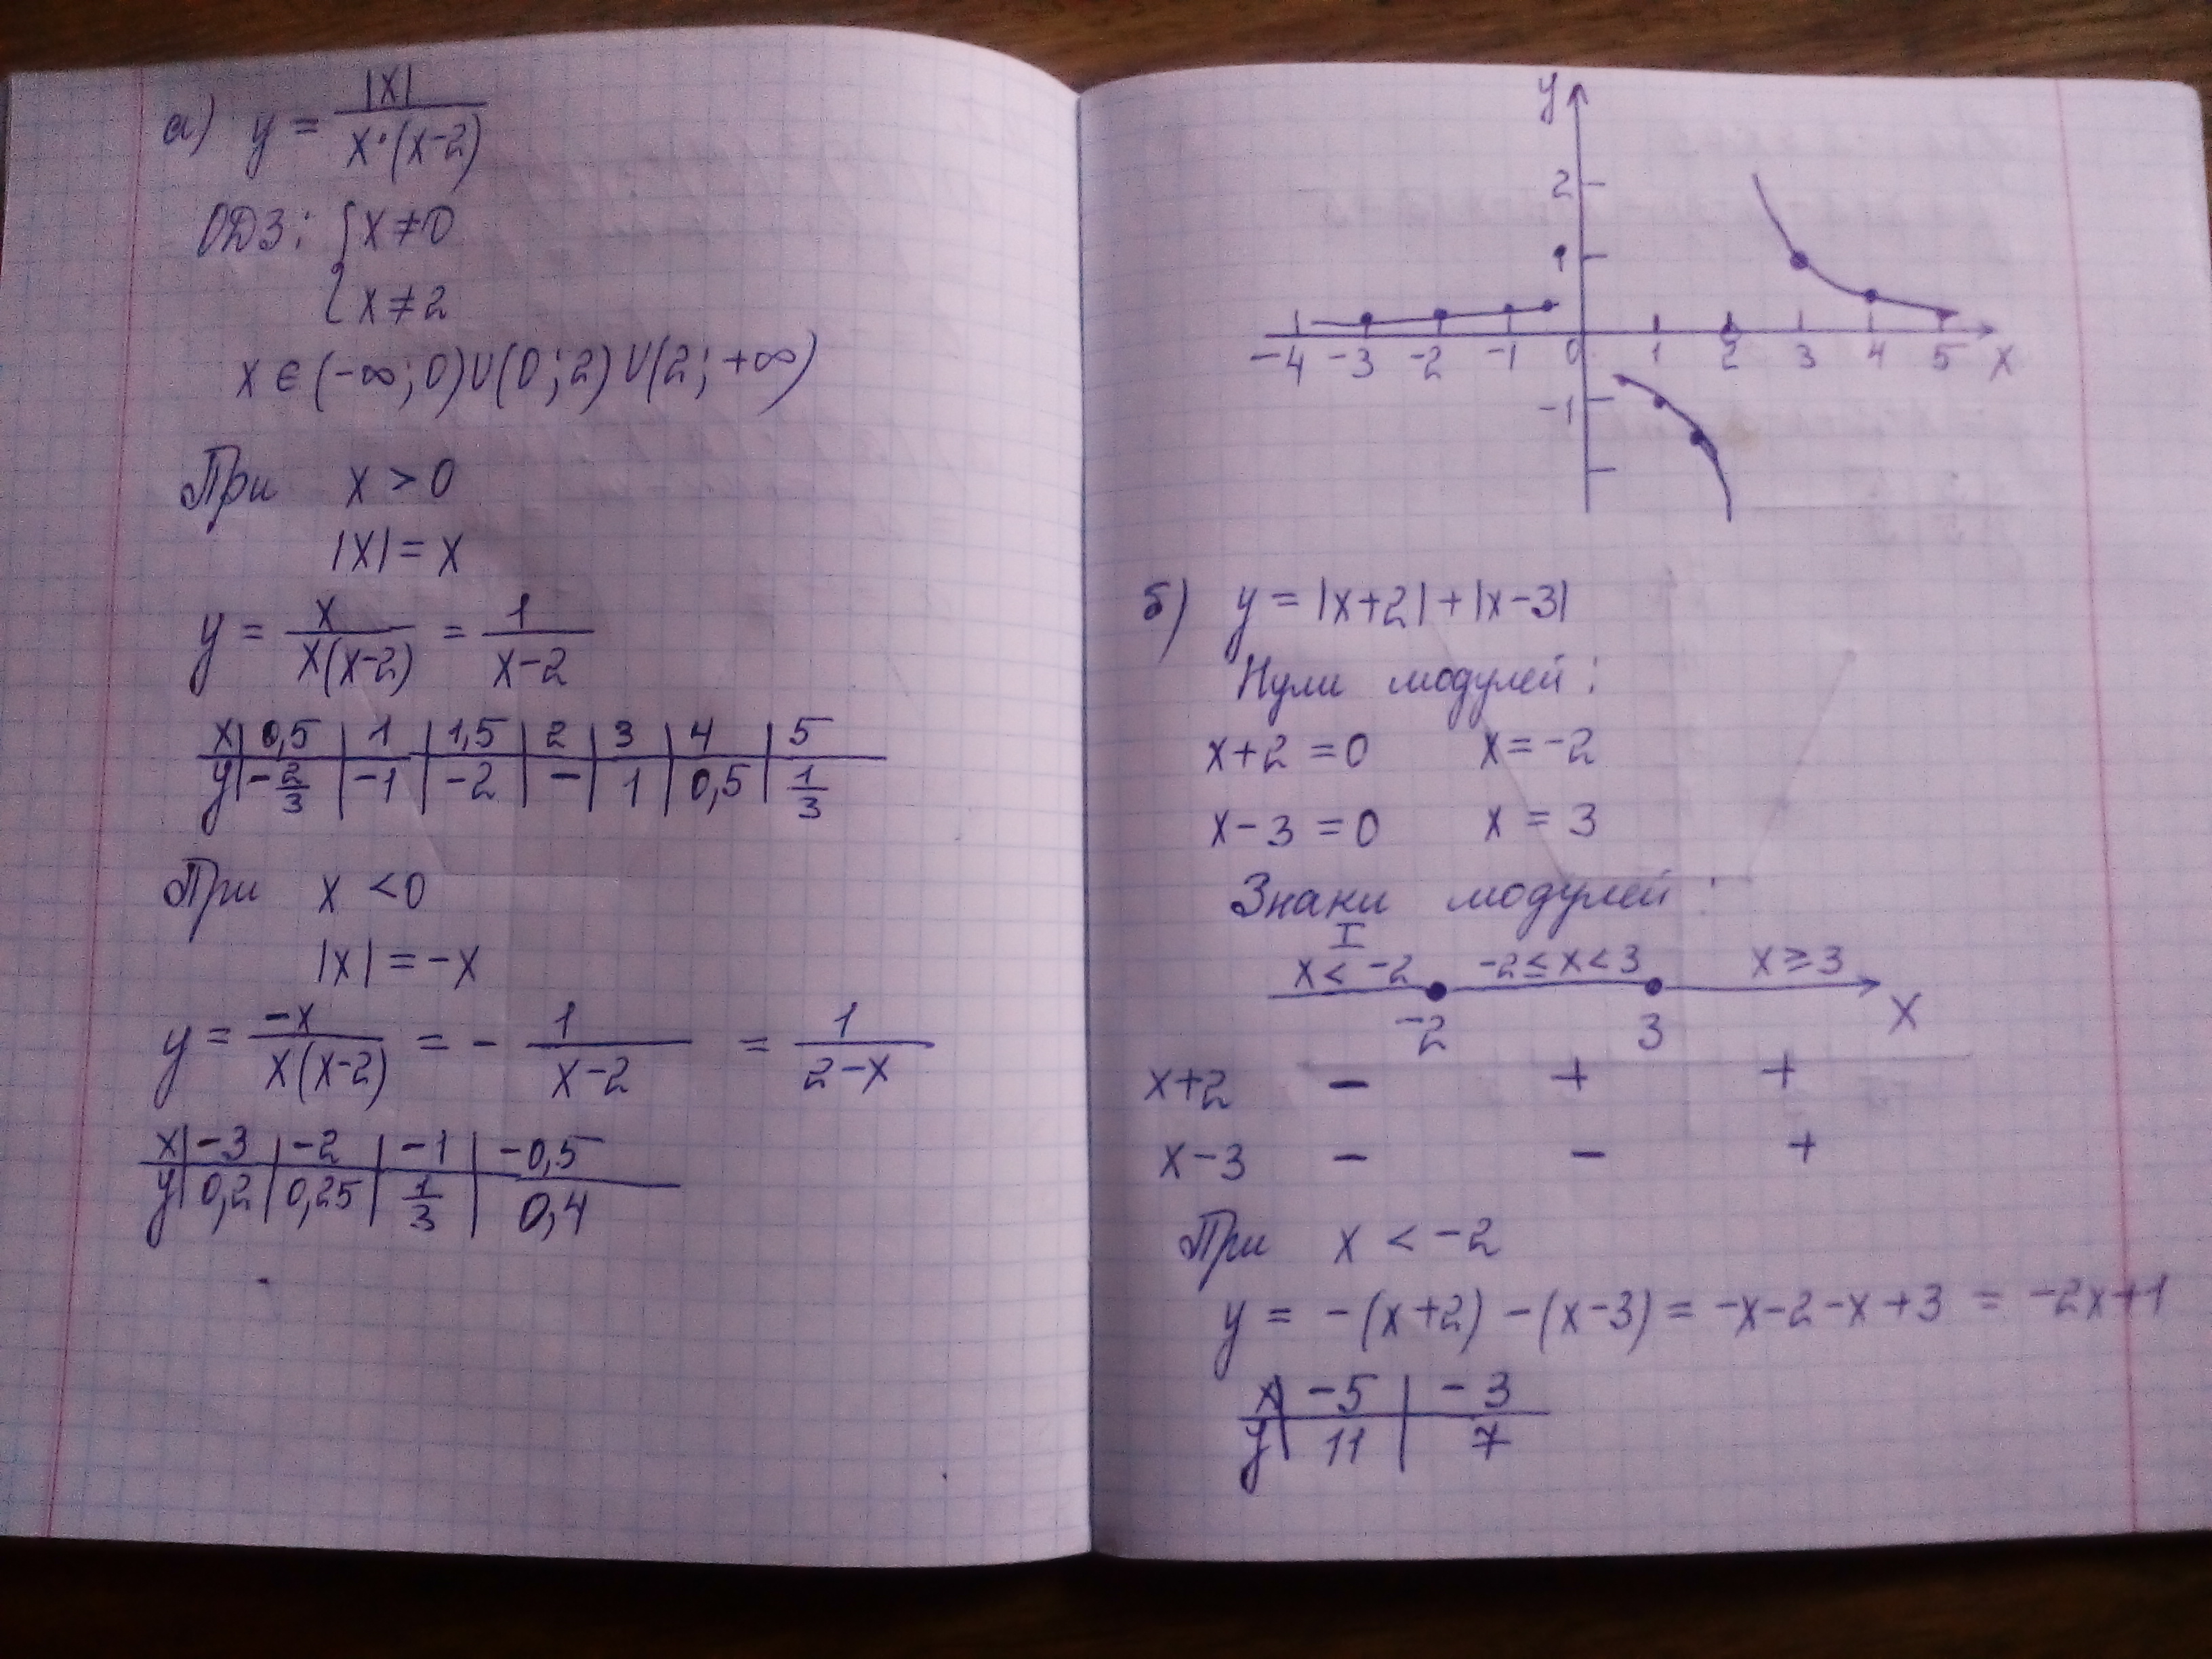 а) y = |x| / x·(x-2)
ОДЗ: { x ≠ 0
{ x ≠ 2
x ∈ (-∞; 0) U (0; 2) U (2; +∞)
При x > 0
|x| = x
y = x / x(x-2) = 1 / x-2
x | 0,5 | 1 | 1,5 | 2 | 3 | 4 | 5
y | -2/3 | -1 | -2 | - | 1 | 0,5 | 1/3
При x < 0
|x| = -x
y = -x / x(x-2) = - 1 / x-2 = 1 / 2-x
x | -3 | -2 | -1 | -0,5
y | 0,2 | 0,25 | 1/3 | 0,4
y
2
1
-4 -3 -2 -1 0 1 2 3 4 5 x
-1
б) y = |x+2| + |x-3|
Нули модулей:
x+2 = 0 x = -2
x-3 = 0 x = 3
Знаки модулей:
I
x < -2 -2 ≤ x < 3 x ≥ 3
-2 3 x
x+2 - + +
x-3 - - +
При x < -2
y = -(x+2) -(x-3) = -x-2-x+3 = -2x+1
x | -5 | -3
y | 11 | 7